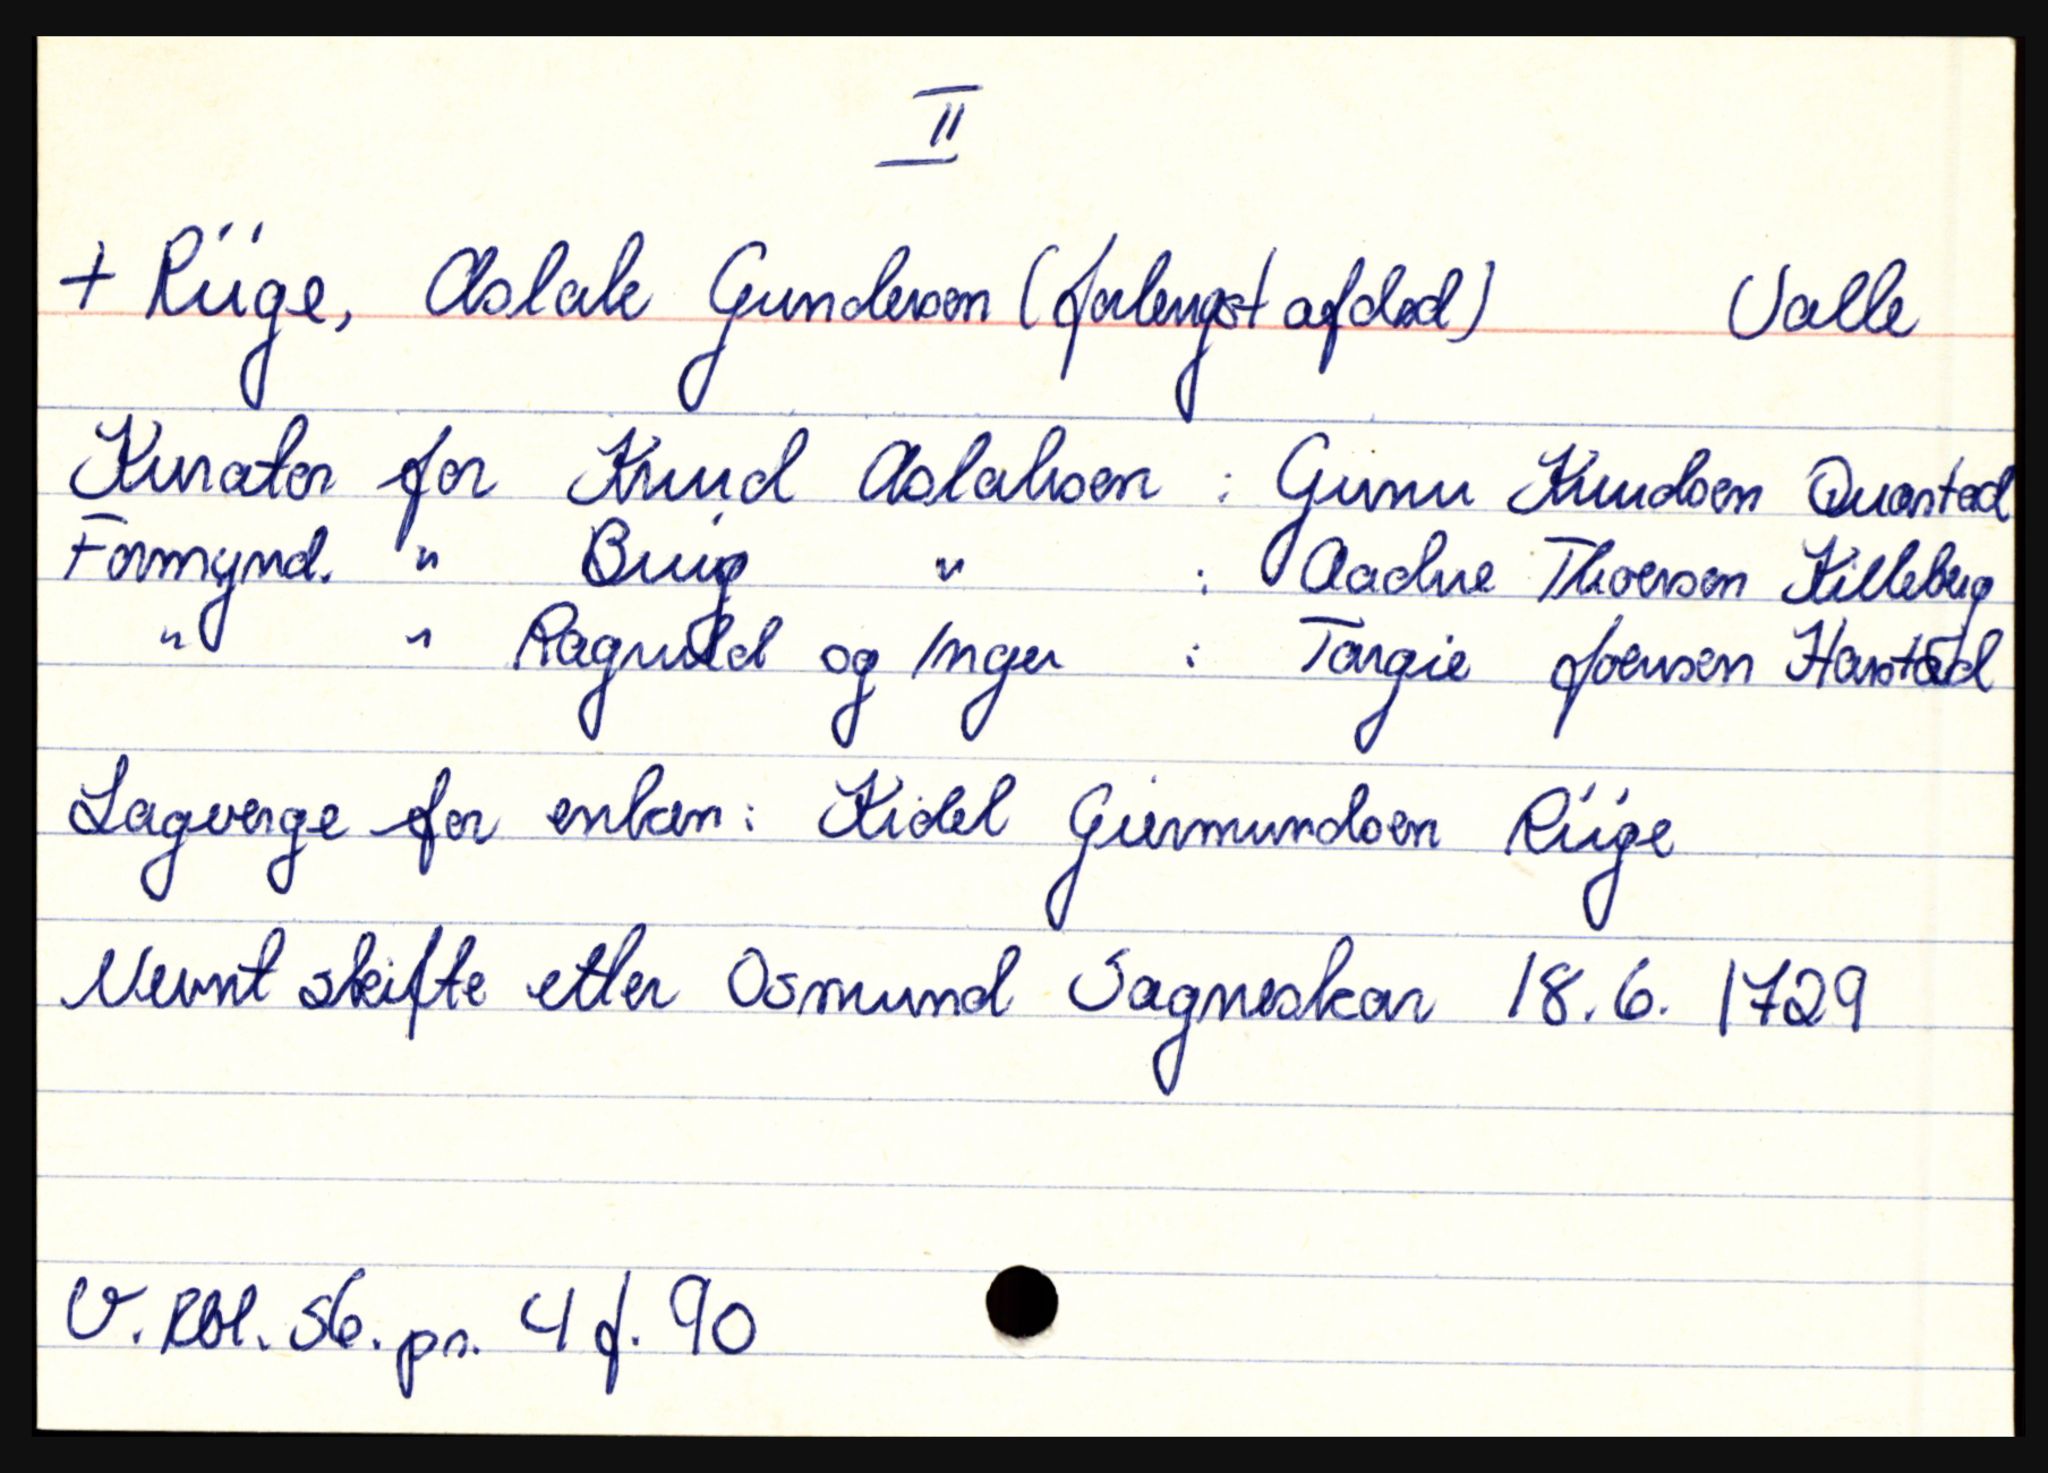 II
+ Riige, Aslak Gundersen (forlengst afdød) Valle
Kurator for Knud Aslaksen : Gunu Knudsen Quastad
Formynd. " Buig " : Aadne Thoersen Killeberg
" " Ragnild og Inger : Torgie Joensen Harstad
Lagverge for enken: Kidel Giermundsen Riige
Nevnt skifte etter Osmund Sagneskar 18. 6. 1729
V. Rbl. 56. pr. 4 f. 90